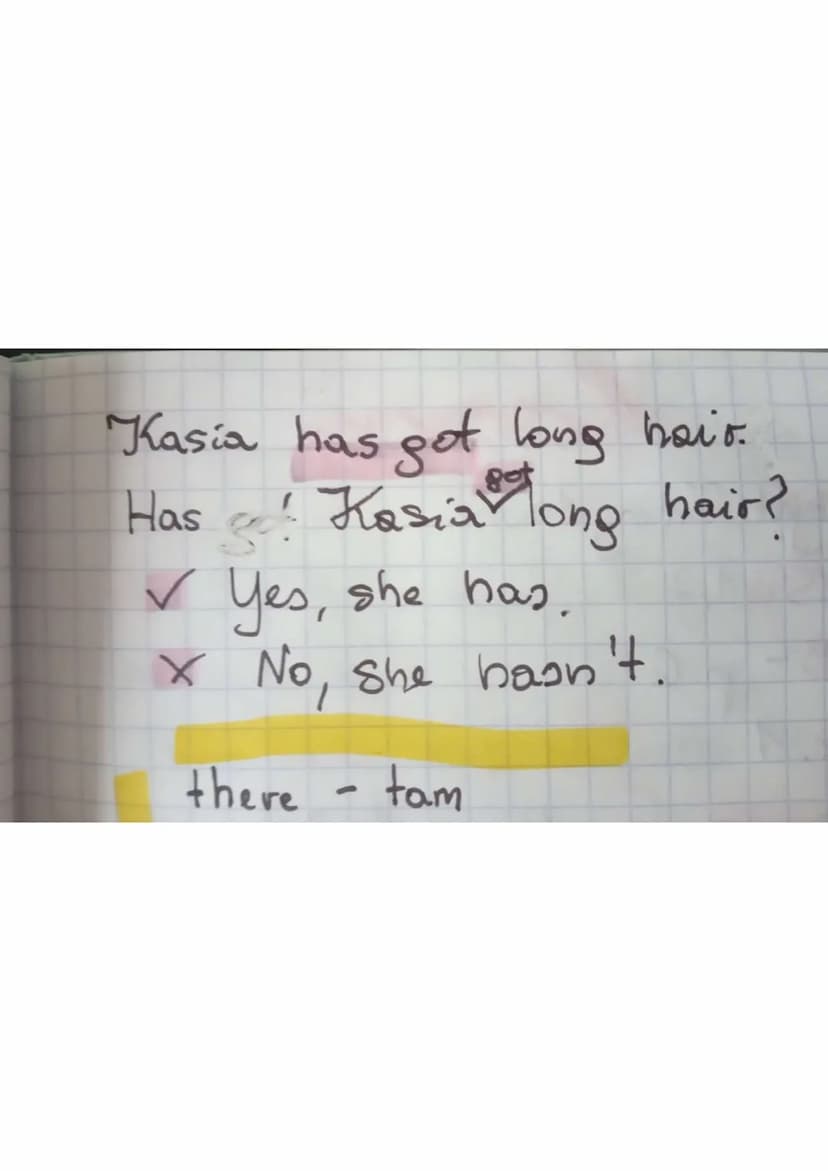 Kasia has got long hair.
Has Kasia got long hair?
✓ Yes, she has.
x No, she hasn't.
there - tam